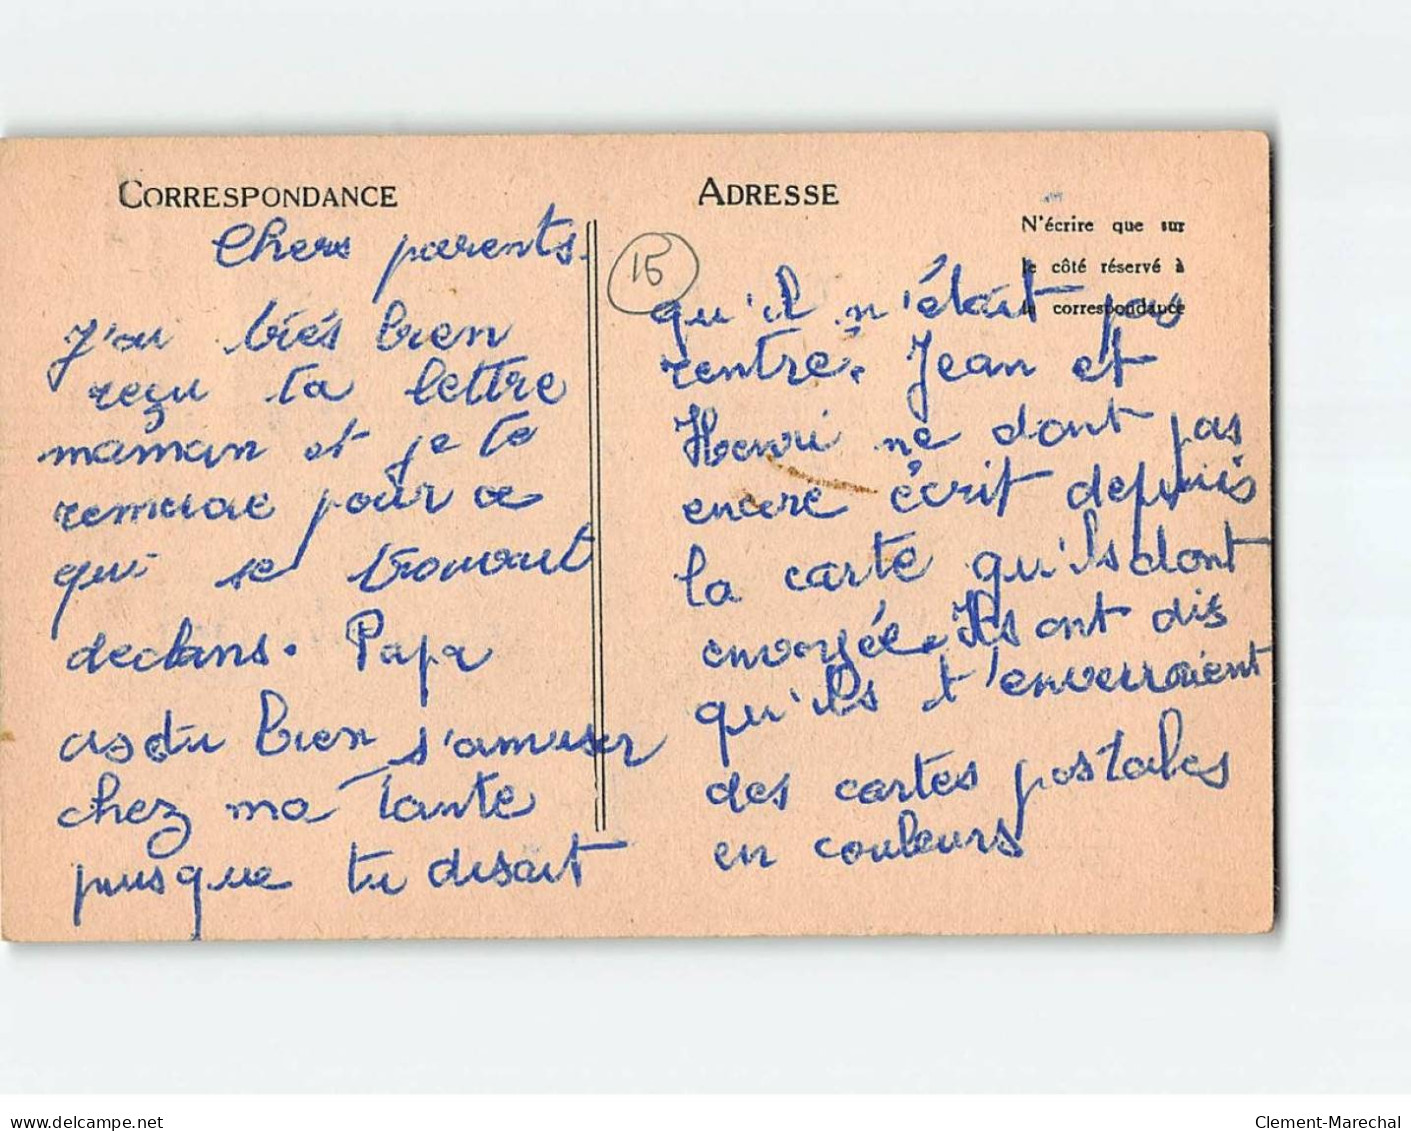 CORRESPONDANCE
Chers parents.
J'ai très bien
reçu ta lettre
maman et je te
remercie pour ce
qui se trouvait
dedans. Papa
as du bien s'amuser
chez ma Tante
puisque tu disait
ADRESSE
N'écrire que sur
le côté réservé à
la correspondance
15
qu'il n'était pas
rentré. Jean et
Henri ne dont pas
encore écrit depuis
la carte qu'ils dont
envoyée. Ils ont dis
qu'ils t'enverraient
des cartes postales
en couleurs
delcampe.net
Clement-Marechal